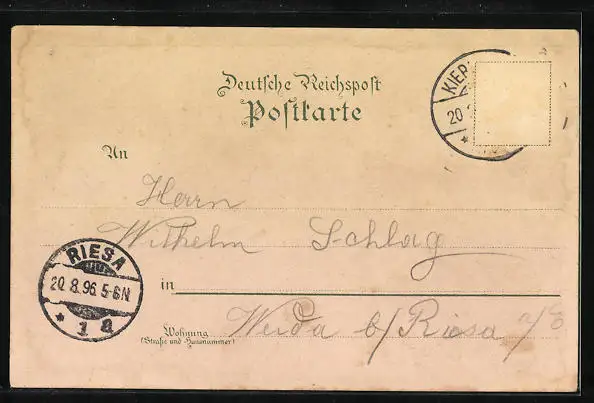 Deutsche Reichspost
Postkarte
KIER
20
An
Herrn
Wilhelm Schlag
RIESA
20.8.96.5-6N
* 1 a
in
Weida b/Riesa a/E
Wohnung
(Straße und Hausnummer)